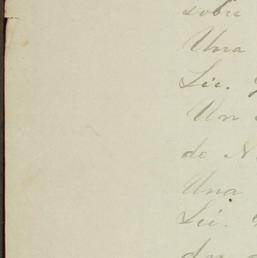 sobre
Una
Lic.
Un
de N
Una
Lic.